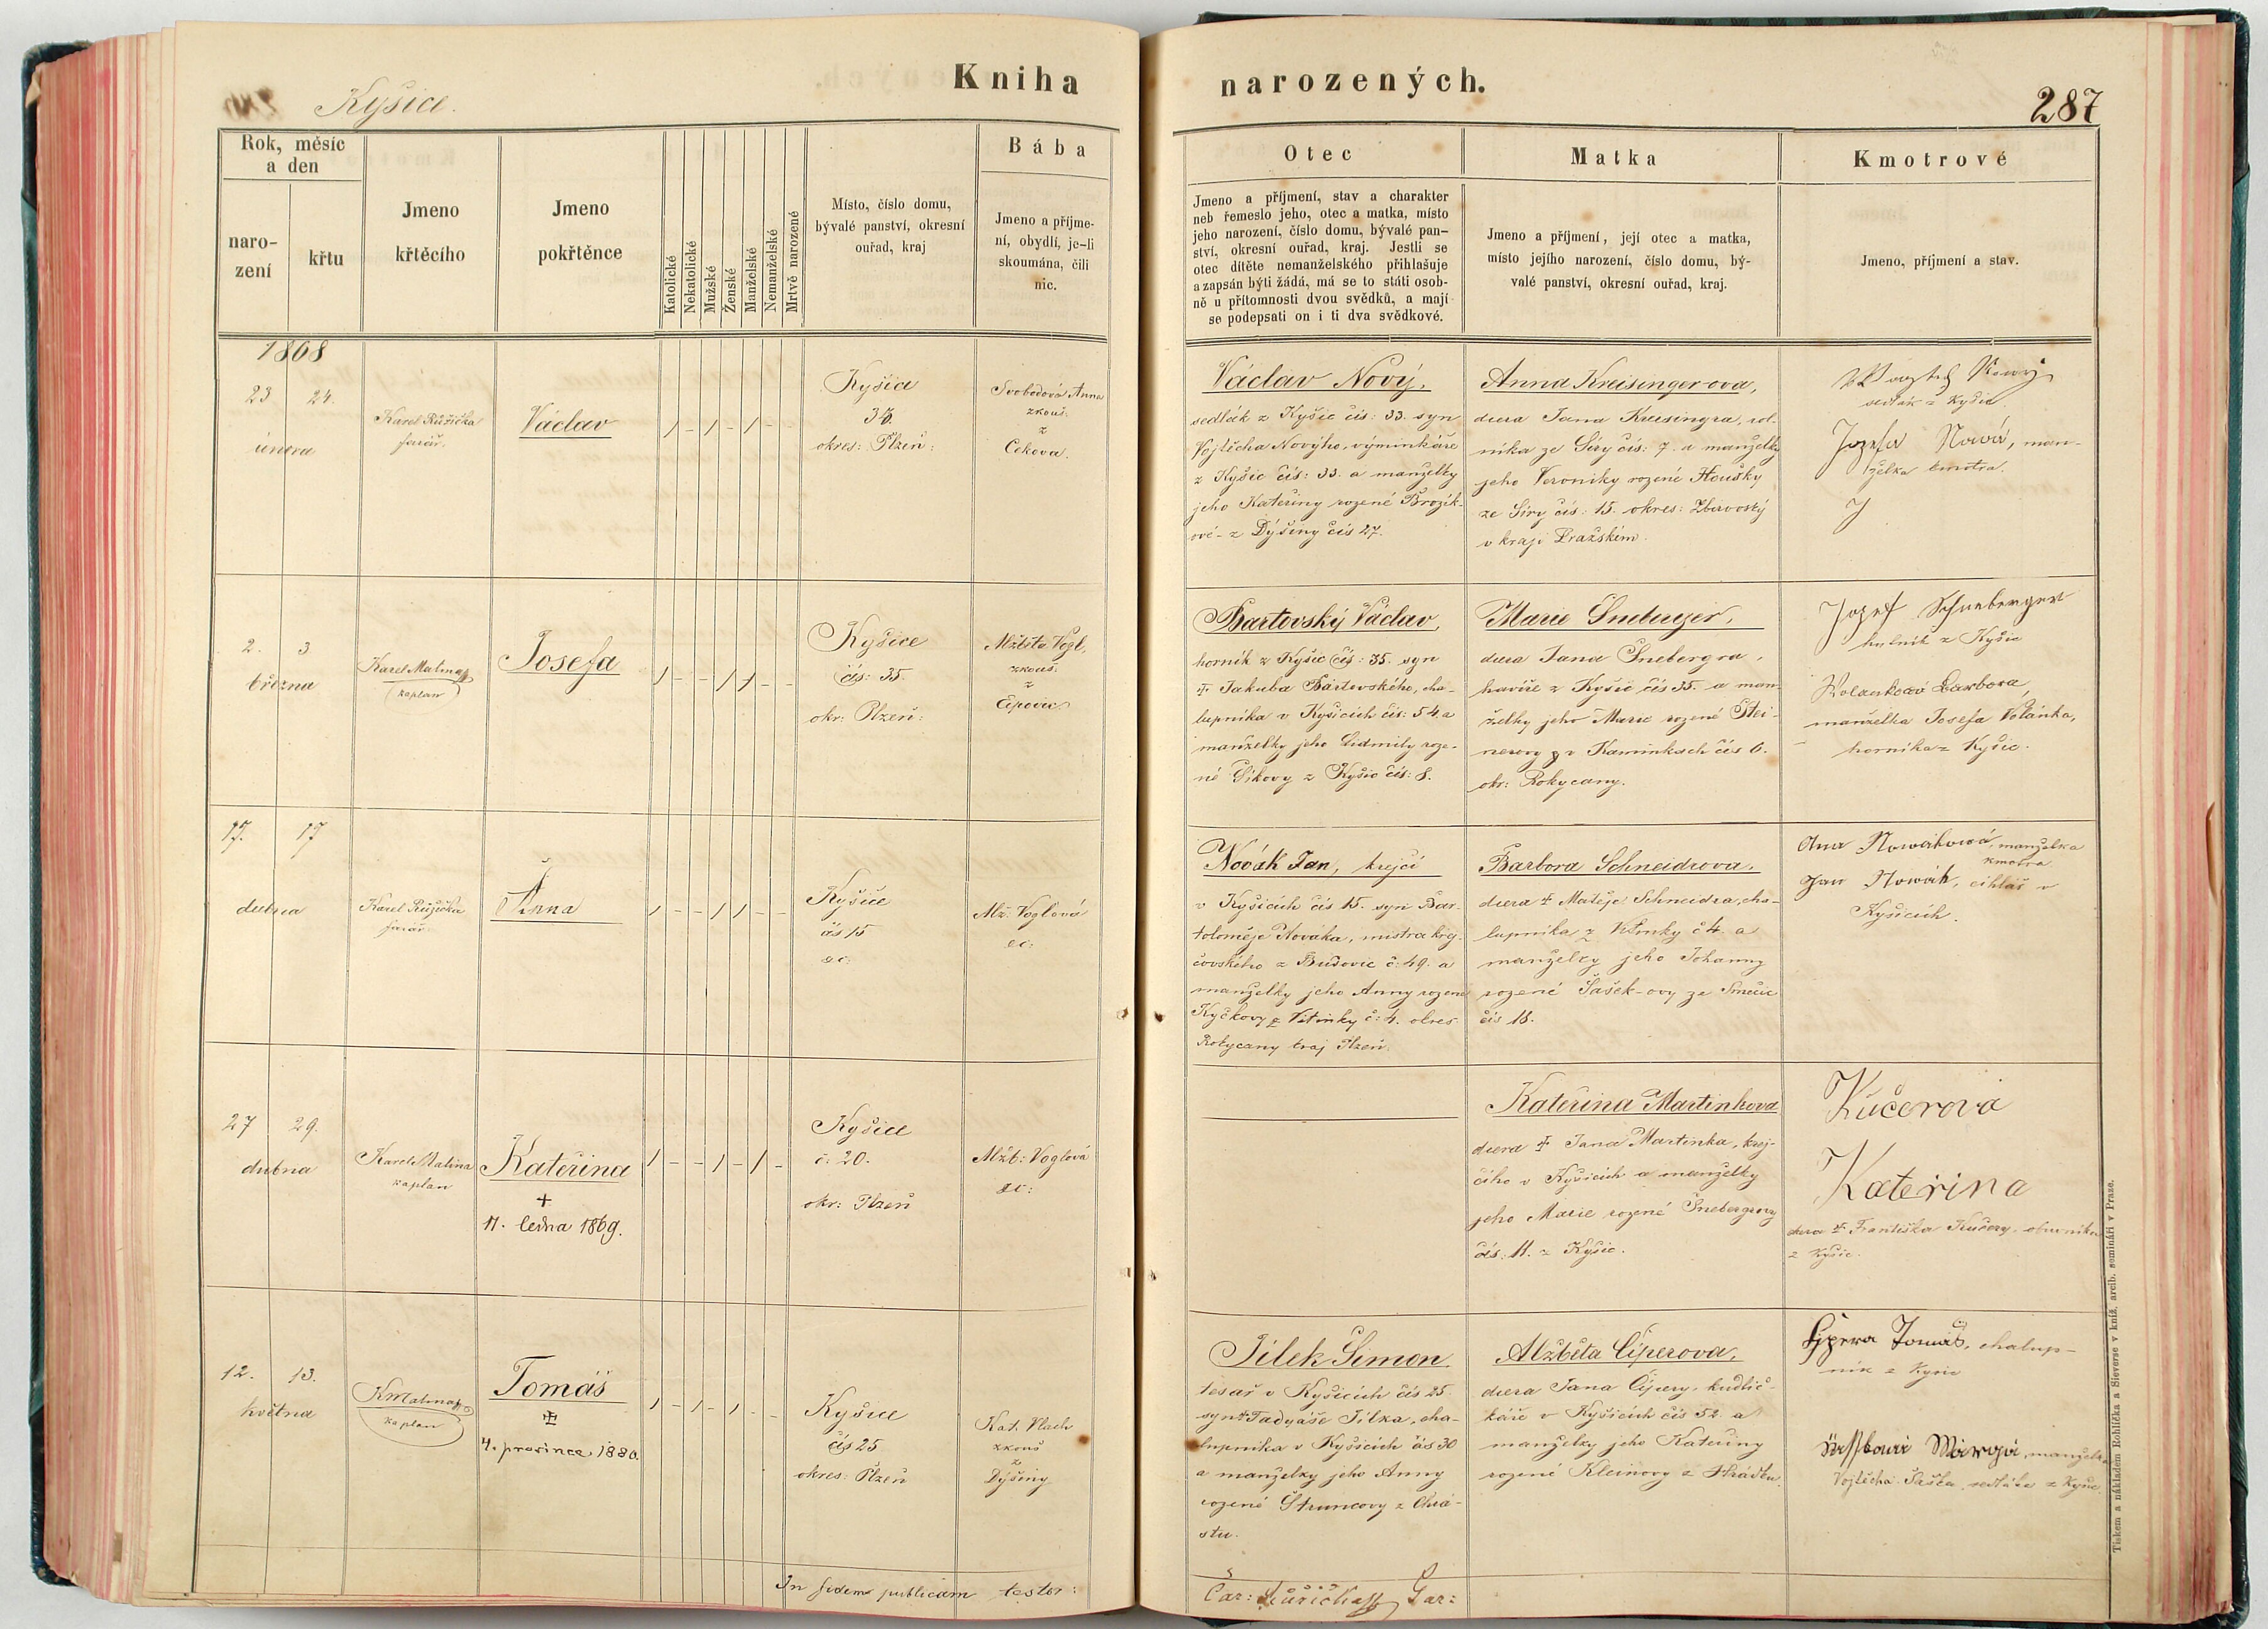 Kyšice.
Kniha narozených.
287
Rok, měsíc
a den
naro-
zení
křtu
Jmeno
křtěcího
Jmeno
pokřtěnce
Katolické
Nekatolické
Mužské
Ženské
Manželské
Nemanželské
Mrtvě narozené
Místo, číslo domu,
bývalé panství, okresní
ouřad, kraj
Bába
Jmeno a příjme-
ní, obydlí, je-li
skoumána, čili
nic.
Otec
Jmeno a příjmení, stav a charakter
neb řemeslo jeho, otec a matka, místo
jeho narození, číslo domu, bývalé pan-
ství, okresní ouřad, kraj. Jestli se
otec dítěte nemanželského přihlašuje
a zapsán býti žádá, má se to státi osob-
ně u přítomnosti dvou svědků, a mají
se podepsati on i ti dva svědkové.
Matka
Jmeno a příjmení, její otec a matka,
místo jejího narození, číslo domu, bý-
valé panství, okresní ouřad, kraj.
Kmotrové
Jmeno, příjmení a stav.
1868
23 24.
února
Karel Růžička
farář.
Václav
Kyšice
okres: Plzeň:
Svobodová Anna
zkouš:
z
Cekova.
Václav Nový,
sedlák z Kyšic čís: 33. syn
Vojtěcha Nového, výminkáře
z Kyšic čís: 33. a manželky
jeho Kateřiny rozené Brozík-
ové - z Dýšiny čís 27.
Anna Kreisinger-ova,
dcera Jana Kreisingra, rol-
níka ze Síry čís: 7. a manželky
jeho Veroniky rozené Houšky
ze Síry čís: 15. okres: Zbirovský
v kraji Pražském.
Nowý
sedlák z Kyšic
Jozefa Nowá, man-
želka kmotra.
2. 3
března
Karel Malina
kaplan
Josefa
Kyšice
čís: 35.
okr: Plzeň:
Alžběta Vogl,
zkouš.
z
Ejpovic
Bartovský Václav,
horník z Kyšic čís: 35. syn
† Jakuba Bartovského, cha-
lupníka v Kyšicích čís: 54. a
manželky jeho Ludmily roze-
né z Kyšic čís: 8.
Marie Šneberger,
dcera Jana Šnebergra,
havíře z Kyšic čís 35. a man-
želky jeho Marie rozené Štei-
nerovy v Kamínkách čís 6.
okr: Rokycany.
Jozef Schneberger
z Kyšic
Wolankowá Barbora,
manželka Josefa Volánka,
horníka z Kyšic.
17. 17
dubna
Karel Růžička
farář.
Anna
Kyšice
čís 15
ec:
Alž. Voglová
ec:
Novák Jan, krejčí
v Kyšicích čís 15. syn Bar-
toloměje Nováka, mistra krej-
čovského z Budovic č: 49. a
manželky jeho Anny rozené
Kyčkovy z Vitinky č: 4. okres
Rokycany kraj Plzeň.
Barbora Schneidrova,
dcera † Matěje Schneidra, cha-
lupníka z Vitinky č 4. a
manželky jeho Johanny
rozené Šašek-ovy ze Smečic
čís 18.
Ana Nowákowá, manželka
kmotra
Jan Nowák, cihlář v
Kyšicích.
27 29.
dubna
Karel Malina
kaplan
Kateřina
+
11. ledna 1869.
Kyšice
č: 20.
okr: Plzeň
Alžb: Voglová
ec:
Kateřina Martinkova
dcera † Jana Martínka, krej-
čího v Kyšicích a manželky
jeho Marie rozené Šnebergrovy
čís: 11. z Kyšic.
Kučerová
Kateřina
dcera † Františka Kučery, obuvníka
z Kyšic.
12. 13.
května
K Malina
kaplan
Tomáš
4. prosince 1880.
Kyšice
čís 25
okres: Plzeň
Kat. Vlach
zkouš
z
Dýšiny
Jílek Šimon
tesař v Kyšicích čís 25.
syn † Tadyáše Jílka, cha-
lupníka v Kyšicích čís 30
a manželky jeho Anny
rozené Štruncovy z Chrá-
stu.
Alžběta Čiperova,
dcera Jana Čipery, kudlič-
káře v Kyšicích čís 52. a
manželky jeho Kateřiny
rozené Kleinovy z Hrádku.
Čipera Tomáš, chalup-
ník z Kyšic
manželka
Vojtěcha Šaška, sedláka z Kyšic
In fidem publicam testor:
Car: Růžička Par:
Tiskem a nákladem Rohlíčka a Sieverse v kníž. arcib. semináři v Praze.